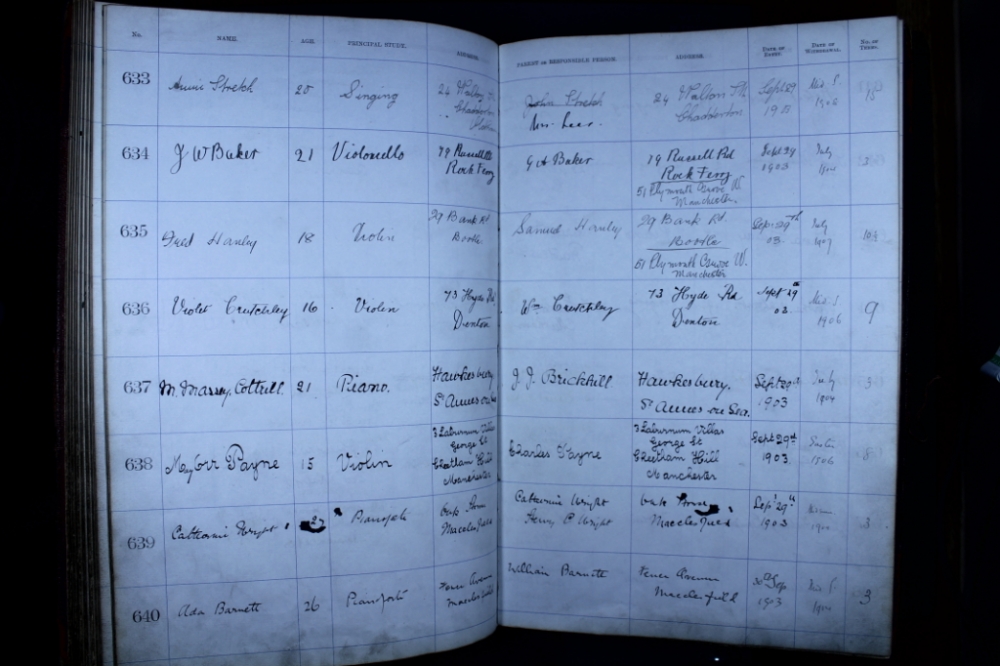 No. NAME. AGE. PRINCIPAL STUDY. ADDRESS. PARENT OR RESPONSIBLE PERSON. ADDRESS. DATE OF ENTRY. DATE OF WITHDRAWAL. No. OF TERMS.
633 Annie Stretch 25 Singing 24 Walton St Chadderton John Stretch 24 Walton St Sept 29
Mrs. Lees. Chadderton
634 J W Baker 21 Violoncello 79 Russell Rd G A Baker 79 Russell Rd Sept 29 July
Rock Ferry Rock Ferry 1903
51 Plymouth Grove W.
Manchester.
635 Fred Hanley 18 Violin 29 Bank Rd Samuel Hanley 29 Bank Rd. Sept 29th July
Bootle Bootle 03. 1907
51 Plymouth Grove W.
Manchester
636 Violet Crutchley 16 Violin 73 Hyde Rd Wm Crutchley 73 Hyde Rd Sept 29th 9
Denton Denton 03 1906
637 M. Massey. Cottrell. 21 Piano. Hawkesbury J. J. Brickhill Hawkesbury. Sept 29th July 3
St Annes on Sea St Annes on Sea. 1903 1904
638 May Orr Payne 15 Violin 3 Laburnum Villas Charles Payne 3 Laburnum Villas Sept 29th
George St George St 1903. 1906
Cheetham Hill Cheetham Hill
Manchester Manchester
639 Catherine Wright 27 Pianoforte Macclesfield Catherine Wright Sept 29th 3
Henry P Wright Macclesfield 1903
640 Ada Barnett 26 Pianoforte William Barnett 30th Sep 3
Macclesfield Macclesfield 1903